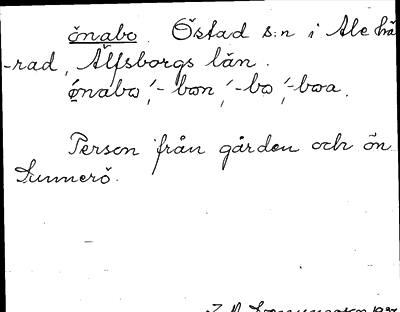 önabo. Östad s:n i Ale hä
-rad, Älfsborgs län.
önabo, -bon, -bo, -boa.
Person från gården och ön
Sunnerö.